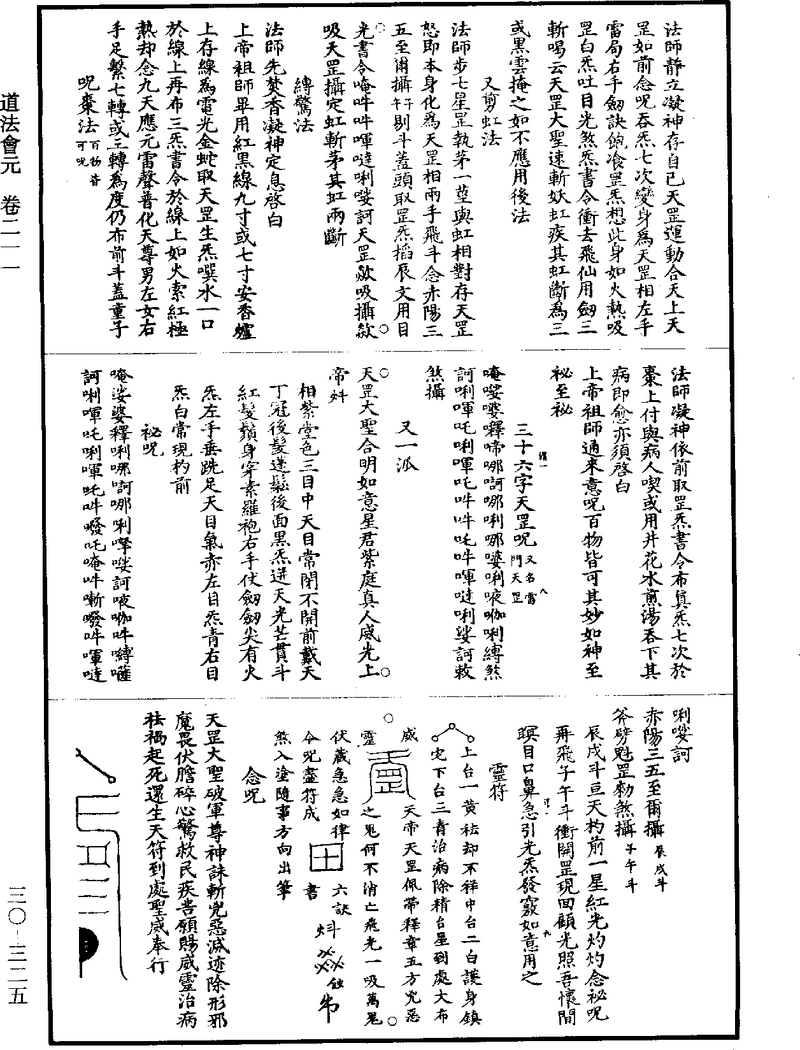 道法會元　卷二一一
三〇—三二五
法師靜立凝神存自己天罡運動合天上天
罡如前念呪吞炁七次變身為天罡相左手
雷局右手劒訣飽飡罡炁想此身如火熱吸
罡白炁吐目光煞炁書令衝去飛仙用劒三
斬喝云天罡大聖速斬妖虹疾其虹斷為三
或黑雲掩之如不應用後法
又剪虹法
法師步七星罡執第一莖與虹相對存天罡
怒即本身化為天罡相兩手飛斗念赤陽三
五至爾攝午子剔斗蓋頭取罡炁搯辰文用目
光書令唵吽吽㖇噠唎㜑訶天罡歘吸攝歘
吸天罡攝定虹斬第其虹兩斷
縛驚法
法師先焚香凝神定息啓白
上帝祖師畢用紅黑線九寸或七寸安香爐
上存線為雷光金蛇取天罡生炁噀水一口
於線上再布三炁書令於線上如火索紅極
熱却念九天應元雷聲普化天尊男左女右
手足繫七轉或三轉為度仍布前斗蓋童子
呪棗法百物皆可呪
法師凝神依前取罡炁書令布真炁七次於
棗上付與病人喫或用井花水煎湯吞下其
病即愈亦須啓白
上帝祖師通來意呪百物皆可其妙如神至
祕至祕
三十六字天罡呪又名雷門天罡
唵㜑㜑釋啼哪訶哪唎哪㜑唎㖡㗎唎縛煞
訶唎㖇吒唎㖇吒吽吽吒吽㖇噠唎㜑訶敕
煞攝
又一派
天罡大聖合明如意星君紫庭真人威光上
帝
相紫堂色三目中天目常閉不開前戴天
丁冠後髮蓬鬆後面黑炁迸天光芒貫斗
紅髮鬚身穿素羅袍右手仗劒劒尖有火
炁左手垂跣足天目氣赤左目炁青右目
炁白常現杓前
祕呪
唵娑婆釋唎哪訶哪唎㘑㜑訶㖡咖吽縛囉
訶唎㖇吒唎㖇吒吽㘔吒唵吽嘶㘔吽㖇噠
唎㜑訶
赤陽三五至爾攝辰戌斗
斧劈魁罡勑煞攝午午斗
辰戌斗亘天杓前一星紅光灼灼念祕呪
再飛子午斗衝開罡現回顧光照吾懷間
瞑目口鼻急引光炁發竅如意用之
靈符
上台一黃祛却不祥中台二白護身鎮
宅下台三青治病除精台星到處大布
威
天帝天罡佩帶釋章五方兇惡
靈
之鬼何不消亡飛光一吸萬鬼
伏藏急急如律
令呪盡符成
六訣
書
煞入塗隨事方向出筆
念呪
天罡大聖破軍尊神誅斬兇惡滅迹除形邪
魔畏伏膽碎心驚救民疾苦願賜威靈治病
祛禍起死還生天符到處聖威奉行